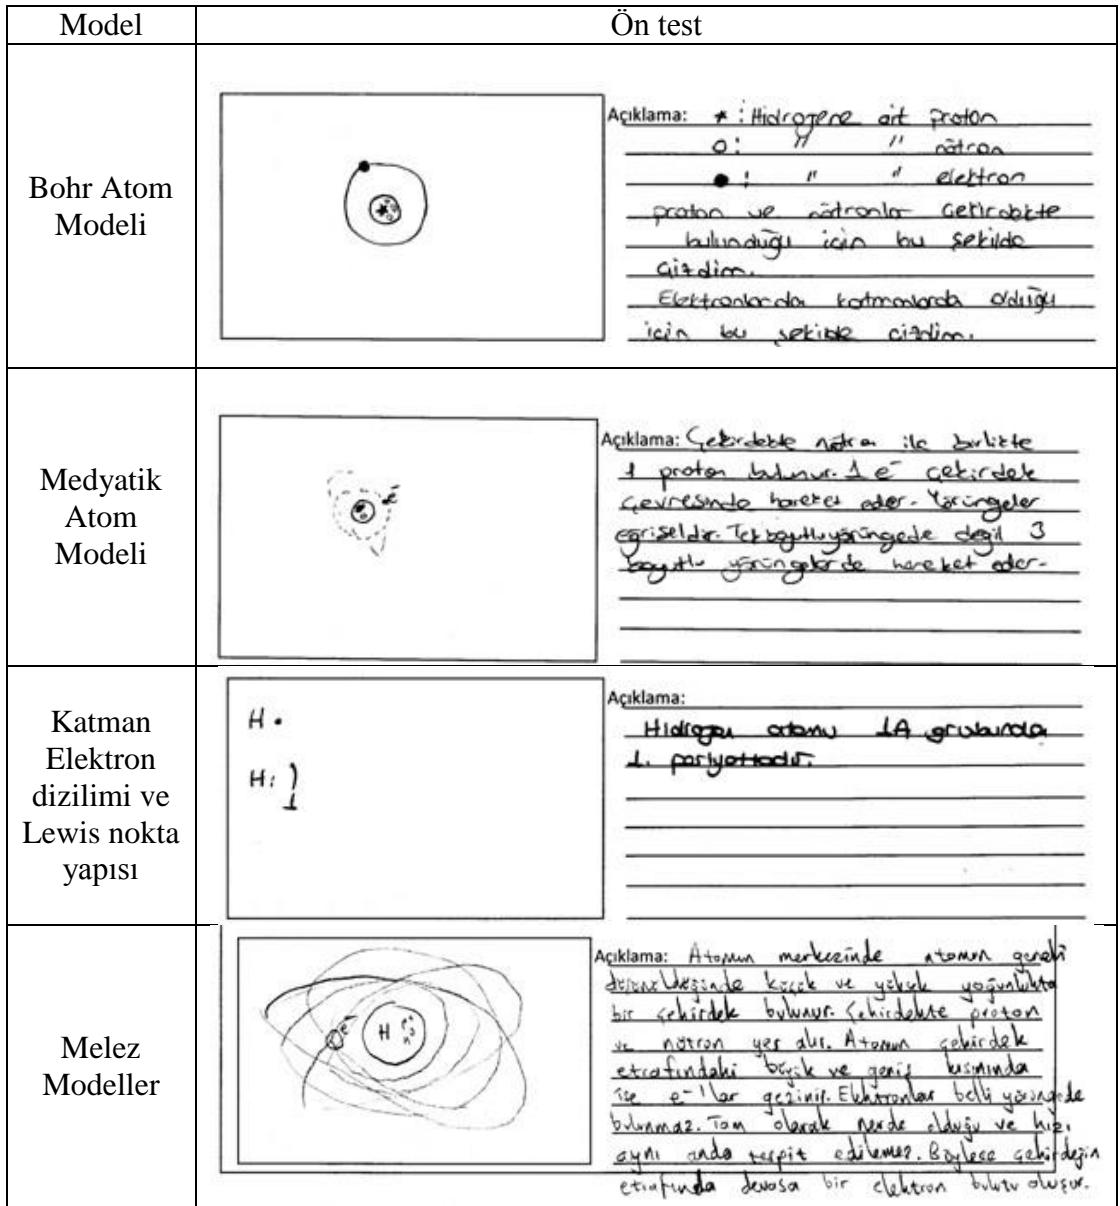 Model
Ön test
Bohr Atom
Modeli
Açıklama: * : Hidrojene ait proton
o : " " nötron
● : " " elektron
proton ve nötronlar çekirdekte
bulunduğu için bu şekilde
çizdim.
Elektronlarda katmanlarda olduğu
için bu şekilde çizdim.
Medyatik
Atom
Modeli
e⁻
Açıklama: Çekirdekte nötron ile birlikte
1 proton bulunur. 1 e⁻ çekirdek
çevresinde hareket eder. Yörüngeler
eğriseldir. Tek boyutlu yörüngede değil 3
boyutlu yörüngelerde hareket eder.
Katman
Elektron
dizilimi ve
Lewis nokta
yapısı
H •
H: )
1
Açıklama:
Hidrojen atomu 1A grubunda
1. periyottadır.
Melez
Modeller
e⁻
H
n
Açıklama: Atomun merkezinde atomun geneli
düşünüldüğünde küçük ve yüksek yoğunlukta
bir çekirdek bulunur. Çekirdekte proton
ve nötron yer alır. Atomun çekirdek
etrafındaki büyük ve geniş kısmında
ise e⁻'lar gezinir. Elektronlar belli yörüngede
bulunmaz. Tam olarak nerde olduğu ve hızı
aynı anda tespit edilemez. Böylece çekirdeğin
etrafında devasa bir elektron bulutu oluşur.